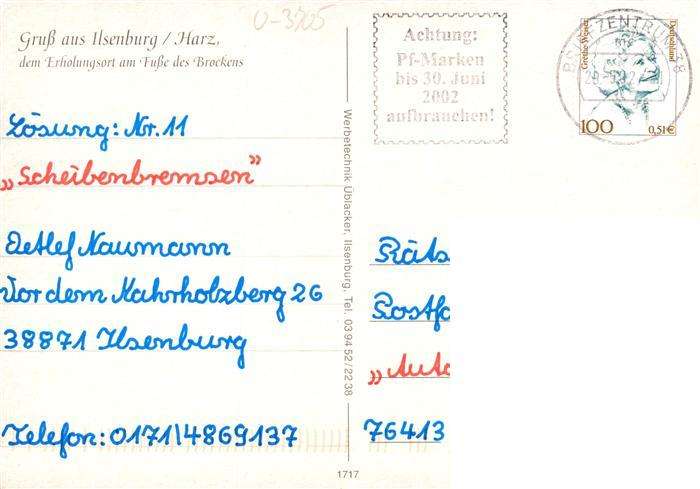 0-3705
Gruß aus Ilsenburg / Harz,
dem Erholungsort am Fuße des Brockens
Achtung:
Pf-Marken
bis 30. Juni
2002
aufbrauchen!
BRIEFZENTRUM 38
Grethe Weiser
Deutschland
100 0,51€
Lösung: Nr. 11
„Scheibenbremsen"
Detlef Naumann
Vor dem Kahrholzberg 26
38871 Ilsenburg
Telefon: 0171\4869137
Werbetechnik Üblacker, Ilsenburg, Tel. 03 94 52 / 22 38
1717
Räts
Postfa
„Auto
76413